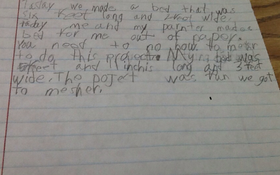 Today we made a bed that was
six foot long and 1 foot wide.
Today me and my partner made a
bed for me out of paper.
You need to no how to meser
to do this project. My was
feet and inchis long and
wide. The poject was fun we got
to mesher.